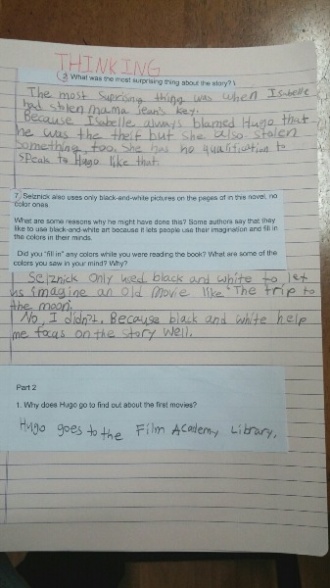 THINKING
6. What was the most surprising thing about the story?
The most Suprising thing was when Isabelle
had stolen mama Jean's key.
Because Isabelle always blamed Hugo that
he was the theif but She also stolen
Something, too. She has no qualifiation to
Speak to Hugo like that.
7. Selznick also uses only black-and-white pictures on the pages of in this novel, no
color ones.
What are some reasons why he might have done this? Some authors say that they
like to use black-and-white art because it lets people use their imagination and fill in
the colors in their minds.
Did you "fill in" any colors while you were reading the book? What are some of the
colors you saw in your mind? Why?
Selznick only used black and white to let
us imagine an old movie like "The trip to
the moon.
No, I didn't. Because black and white help
me focus on the story well.
Part 2
1. Why does Hugo go to find out about the first movies?
Hugo goes to the Film Academy Library.